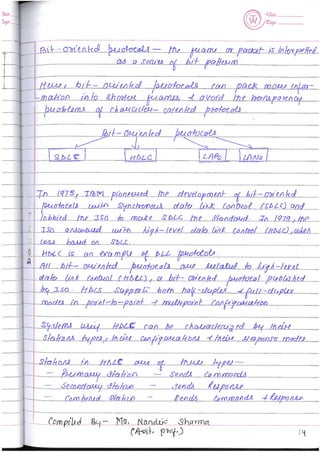 Date
Page
Bit-oriented protocols — the frame or packet is interpretted
as a series of bit pattern
Here, bit-oriented protocols can pack more infor-
-mation into shorter frames & avoid the transparency
problems of character-oriented protocols.
Bit-oriented protocols
SDLC HDLC LAPs LANs
In 1975, IBM pioneered the development of bit-oriented
protocols with synchronous data link control (SDLC) and
lobbied the ISO to make SDLC the standard. In 1979, the
ISO answered with high-level data link control (HDLC), which
was based on SDLC.
HDLC is an example of DLL protocols.
All bit-oriented protocols are related to high-level
data link control (HDLC), a bit-oriented protocol published
by ISO. HDLC supports both half-duplex & full-duplex
modes in point-to-point & multipoint configuration
Systems using HDLC can be characterized by their
stations types, their configurations & their response modes
Stations in HDLC are of three types —
Primary station — sends commands
Secondary station — sends response
Combined station — sends commands & response
Compiled By:- Ms. Nandini Sharma
(Asst. prof.)
14